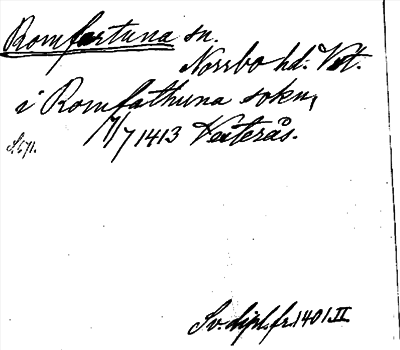 Romfartuna sn.
Norrbo hd. Vstm.
i Romfathuna sokn,
17/7 1413 Vesterås.
S. 671.
Sv. dipl. fr. 1401 II